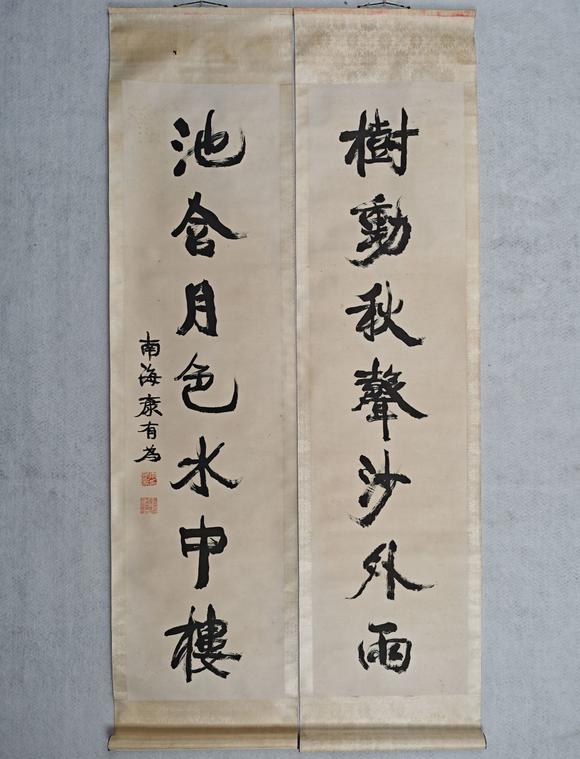 樹動秋聲沙外雨
池含月色水中樓
南海康有為